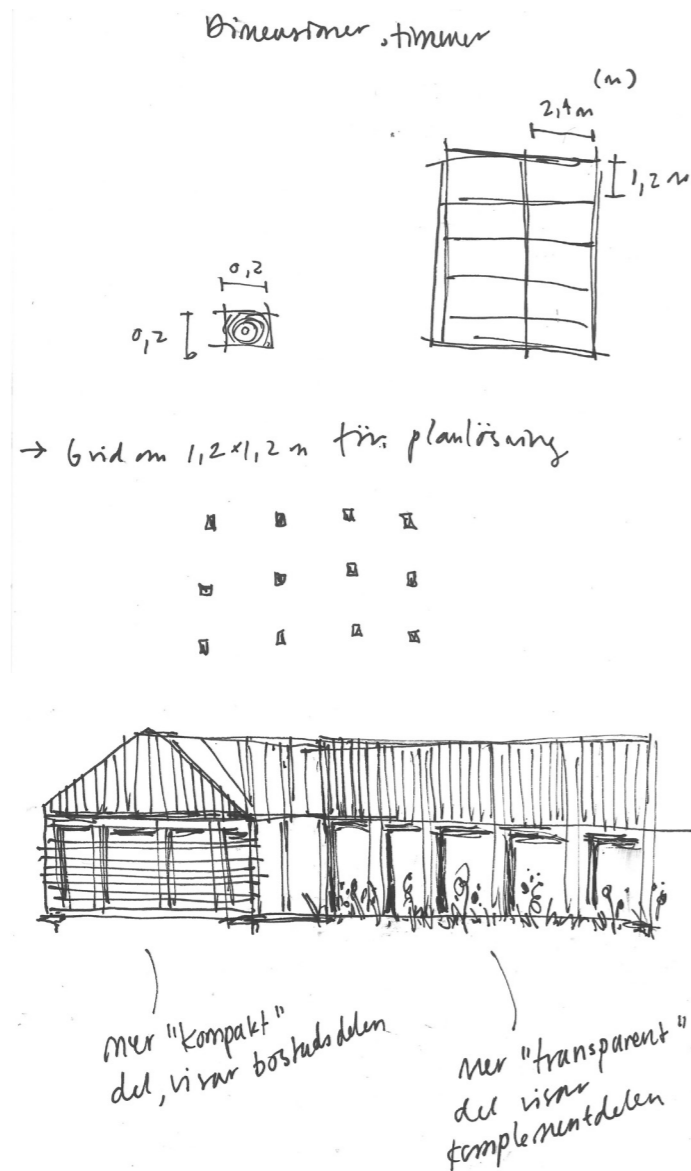 Dimensioner, timmer
(m)
2,4 m
1,2 m
0,2
0,2
→ Grid om 1,2×1,2 m för planlösning
mer "kompakt"
del, visar bostadsdelen
mer "transparent"
del visar
komplementdelen